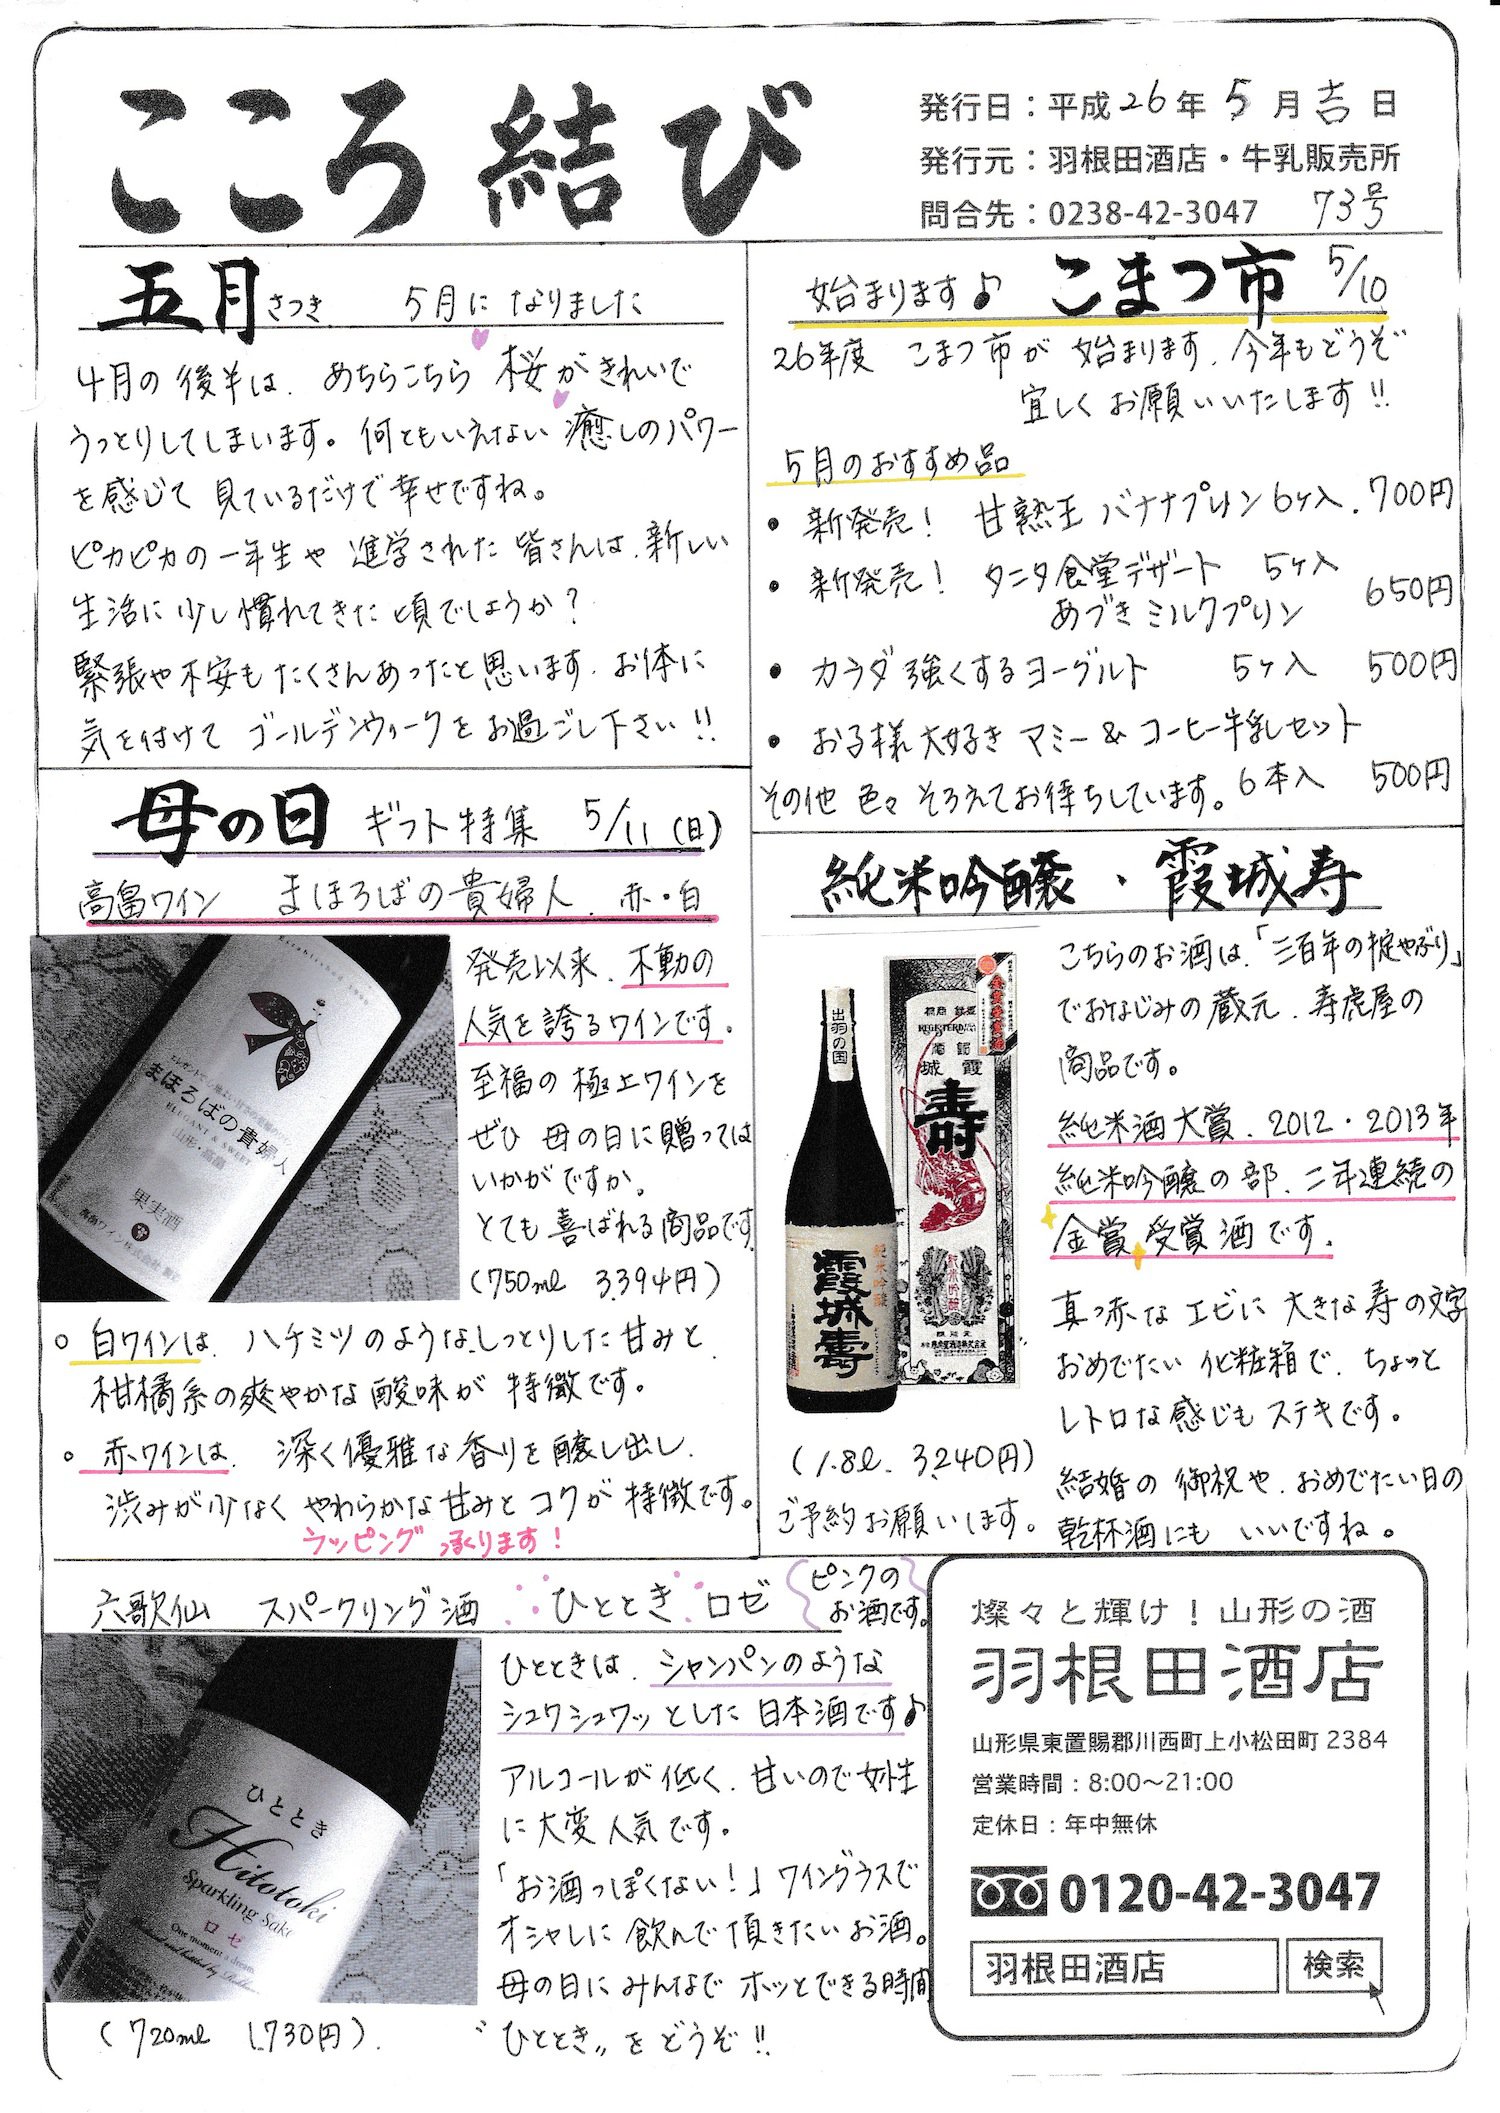 こころ結び
発行日：平成26年5月吉日
発行元：羽根田酒店・牛乳販売所
問合先：0238-42-3047 73号
五月さつき 5月になりました
4月の後半は、あちらこちら桜がきれいで
うっとりしてしまいます。何ともいえない癒しのパワー
を感じて見ているだけで幸せですね。
ピカピカの一年生や進学された皆さんは、新しい
生活に少し慣れてきた頃でしょうか？
緊張や不安もたくさんあったと思います。お体に
気を付けてゴールデンウィークをお過ごし下さい!!
始まります♪ こまつ市 5/10
26年度 こまつ市が始まります。今年もどうぞ
宜しくお願いいたします!!
5月のおすすめ品
• 新発売！ 甘熟王バナナプリン6ヶ入. 700円
• 新発売！ タニタ食堂デザート 5ヶ入
あづきミルクプリン 650円
• カラダ強くするヨーグルト 5ヶ入 500円
• お子様大好きマミー&コーヒー牛乳セット
6本入 500円
その他色々そろえてお待ちしています。
母の日 ギフト特集 5/11(日)
高畠ワイン まほろばの貴婦人 赤・白
発売以来、不動の
人気を誇るワインです。
至福の極上ワインを
ぜひ母の日に贈っては
いかがですか。
とても喜ばれる商品です
(750ml 3,394円)
まほろばの貴婦人
ELEGANT & SWEET
山形・高畠
果実酒
◦ 白ワインは、ハチミツのような、しっとりした甘みと、
柑橘系の爽やかな酸味が特徴です。
◦ 赤ワインは、深く優雅な香りを醸し出し、
渋みが少なくやわらかな甘みとコクが特徴です。
ラッピング承ります！
純米吟醸・霞城寿
こちらのお酒は、「三百年の掟やぶり」
でおなじみの蔵元、寿虎屋の
商品です。
純米酒大賞、2012・2013年
純米吟醸の部、二年連続の
金賞受賞酒です。
真っ赤なエビに大きな寿の文字
おめでたい化粧箱で、ちょっと
レトロな感じもステキです。
結婚の御祝や、おめでたい日の
乾杯酒にもいいですね。
出羽の国
純米吟醸
霞城寿
寿
(1.8l. 3,240円)
ご予約お願いします。
六歌仙 スパークリング酒 ひととき ロゼ
ピンクの
お酒です。
ひとときは、シャンパンのような
シュワシュワッとした日本酒です♪
アルコールが低く、甘いので女性
に大変人気です。
「お酒っぽくない！」ワイングラスで
オシャレに飲んで頂きたいお酒。
母の日にみんなでホッとできる時間
〝ひととき〟をどうぞ!!
ひととき
Hitotoki
Sparkling Sake
ロゼ
(720ml 1,730円)
燦々と輝け！山形の酒
羽根田酒店
山形県東置賜郡川西町上小松田町2384
営業時間：8:00〜21:00
定休日：年中無休
0120-42-3047
羽根田酒店 検索